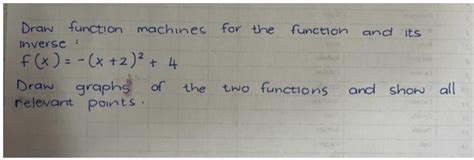 Draw function machines for the function and its
inverse :
f(x) = -(x + 2)² + 4
Draw graphs of the two functions and show all
relevant points.